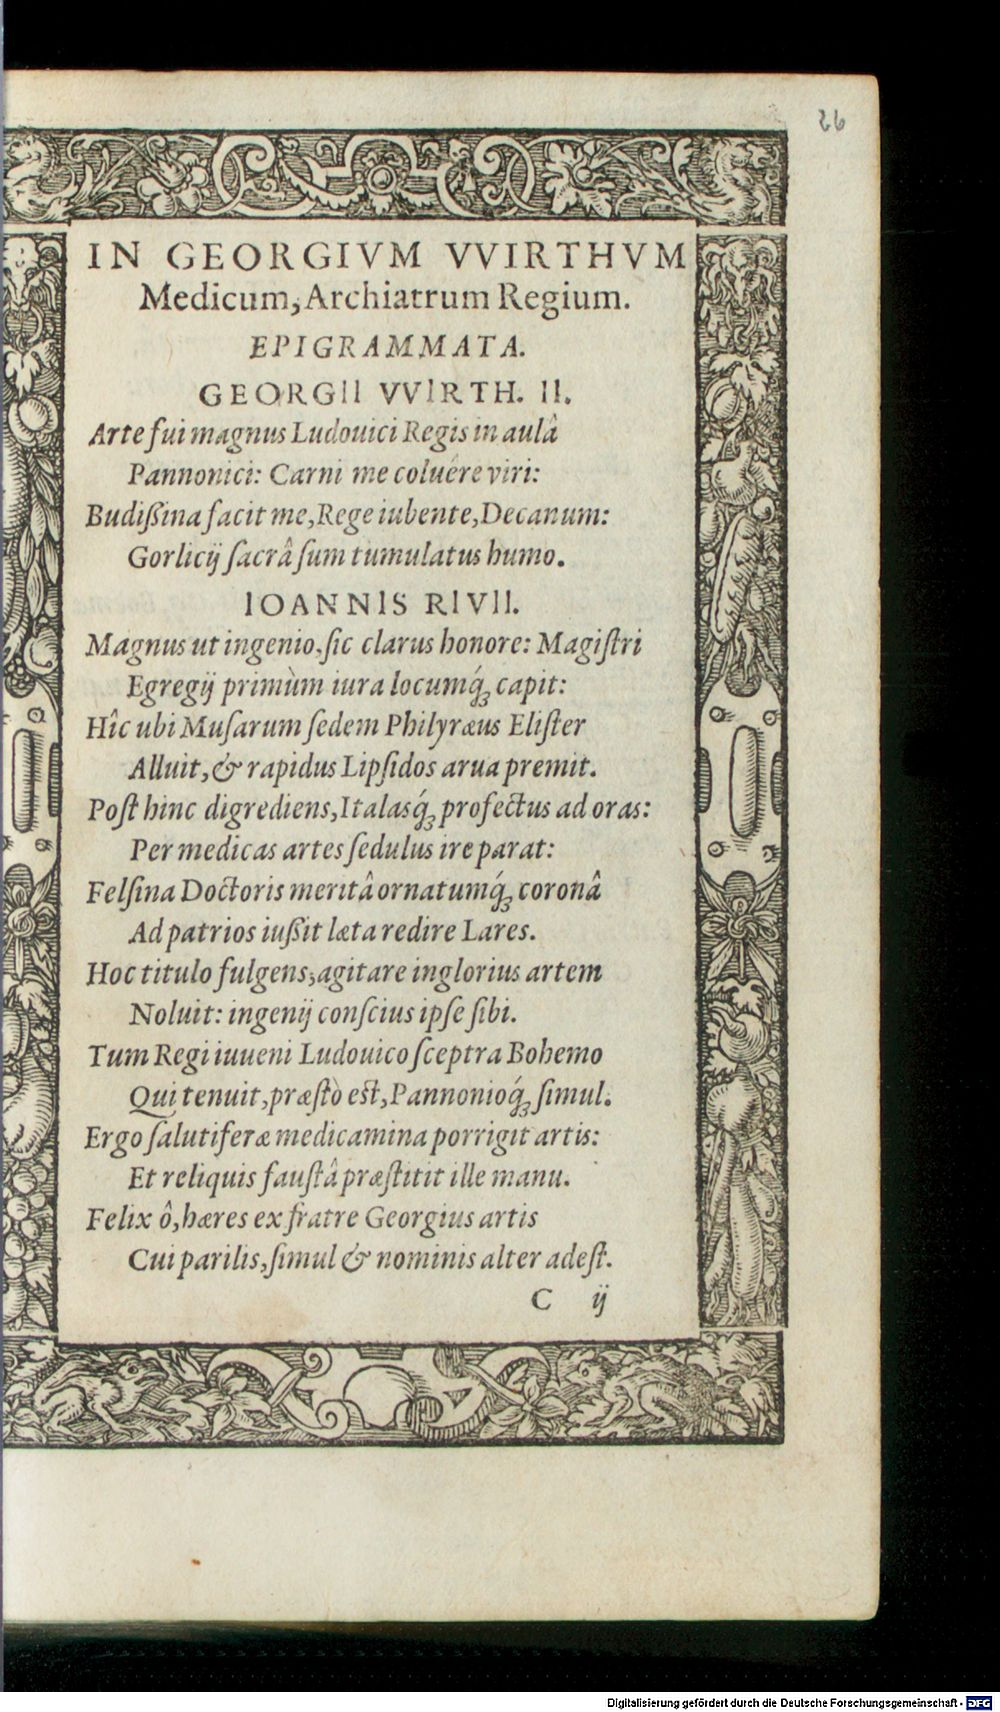 26
IN GEORGIVM VVIRTHVM
Medicum, Archiatrum Regium.
EPIGRAMMATA.
GEORGII VVIRTH. II.
Arte fui magnus Ludouici Regis in aulâ
Pannonici: Carni me coluêre viri:
Budißina facit me, Rege iubente, Decanum:
Gorlicij ſacrâ ſum tumulatus humo.
IOANNIS RIVII.
Magnus ut ingenio, ſic clarus honore: Magiſtri
Egregij primùm iura locumq́ꝫ capit:
Hîc ubi Muſarum ſedem Philyræus Eliſter
Alluit, & rapidus Lipſidos arua premit.
Poſt hinc digrediens, Italasq́ꝫ profectus ad oras:
Per medicas artes ſedulus ire parat:
Felſina Doctoris meritâ ornatumq́ꝫ coronâ
Ad patrios iußit læta redire Lares.
Hoc titulo fulgens, agitare inglorius artem
Noluit: ingenij conſcius ipſe ſibi.
Tum Regi iuueni Ludouico ſceptra Bohemo
Qui tenuit, præſtò eſt, Pannonioq́ꝫ ſimul.
Ergo ſalutiferæ medicamina porrigit artis:
Et reliquis fauſtâ præſtitit ille manu.
Felix ô, hæres ex fratre Georgius artis
Cui parilis, ſimul & nominis alter adeſt.
C ij
Digitalisierung gefördert durch die Deutsche Forschungsgemeinschaft - DFG